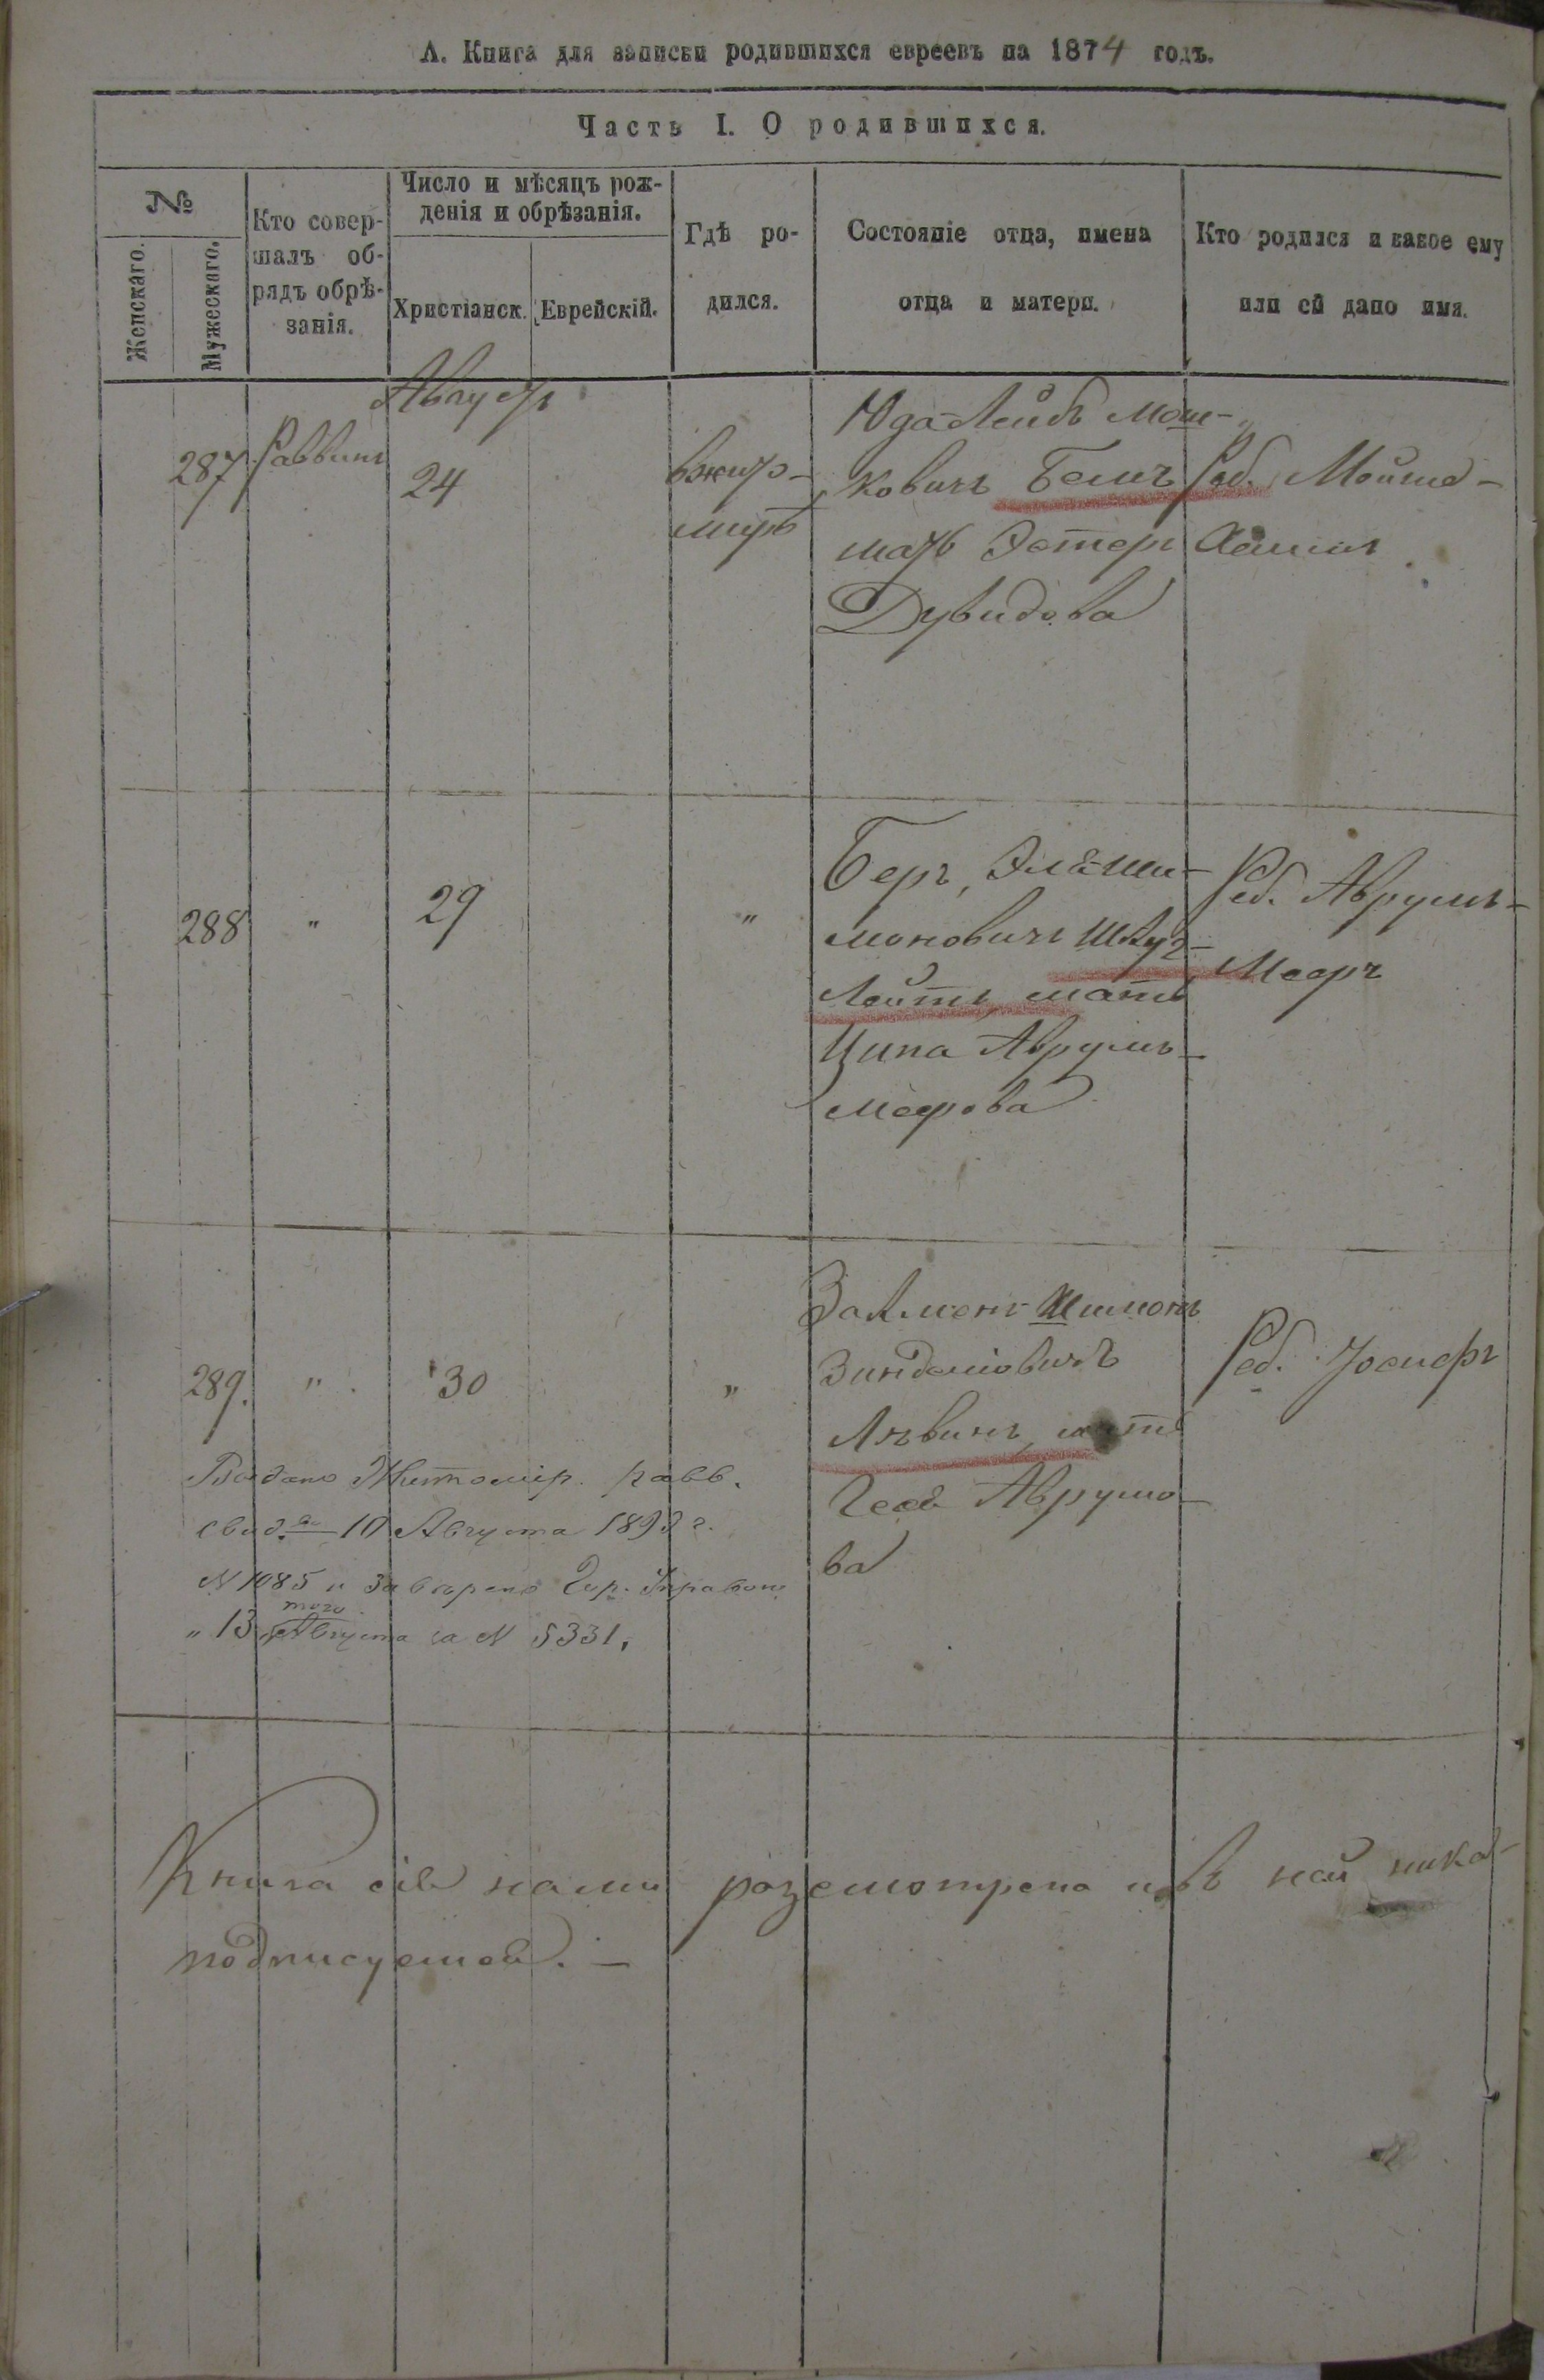 А. Книга для записки родившихся евреевъ на 1874 годъ.
Часть I. О родившихся.
№
Женскаго.
Мужескаго.
Кто совер-
шалъ об-
рядъ обрѣ-
занія.
Число и мѣсяцъ рож-
денія и обрѣзанія.
Христіанск.
Еврейскій.
Гдѣ ро-
дился.
Состояніе отца, имена
отца и матери.
Кто родился и какое ему
или ей дано имя.
Августъ
287
Раввинъ
24
вжито-
миръ
Юда-Лейбъ Мош-
ковичъ Бемъ
мать Эстеръ
Дувидова
Реб. Мойше-
288
"
29
"
Беръ, Эля-Ши-
моновичъ
мать
Ципа Аврумъ-
Меерова
Реб. Аврумъ-
Мееръ
289.
"
30
"
Залменъ-Шимонъ
Зинделіовичъ
Лѣвинъ, мать
Геся Аврумо-
ва
Реб. Іосифъ
Выдано Житомір. равв.
свид. во 10 Августа 1893 г.
N 1085 и заверено Гор. Управою
того
" 13 Августа за N 5331,
Книга сія нами разсмотрена и въ ней ника-
подписуемой. —